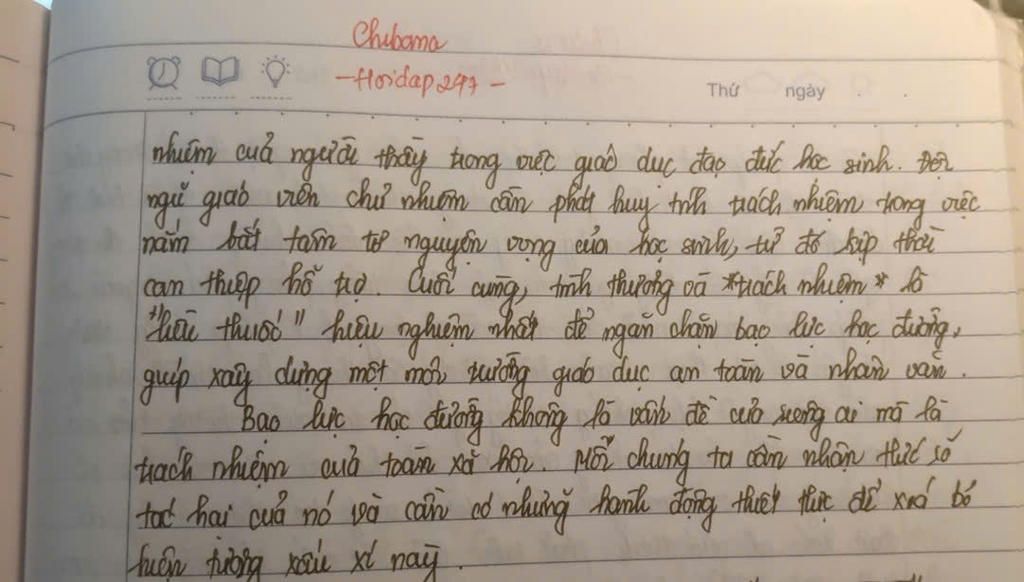 Chibama
-Hoidap247-
Thứ ngày
nhiệm của người thầy trong việc giáo dục đạo đức học sinh. Đội
ngũ giáo viên chủ nhiệm cần phát huy tính trách nhiệm trong việc
nắm bắt tâm tư nguyện vọng của học sinh, từ đó kịp thời
can thiệp hỗ trợ. Cuối cùng, tình thương và *trách nhiệm* là
"liều thuốc" hiệu nghiệm nhất để ngăn chặn bạo lực học đường,
giúp xây dựng một môi trường giáo dục an toàn và nhân văn.
Bạo lực học đường không là vấn đề của riêng ai mà là
trách nhiệm của toàn xã hội. Mỗi chúng ta cần nhận thức số
tác hại của nó và cần có những hành động thiết thực để xoá bỏ
hiện tượng xấu xí này.